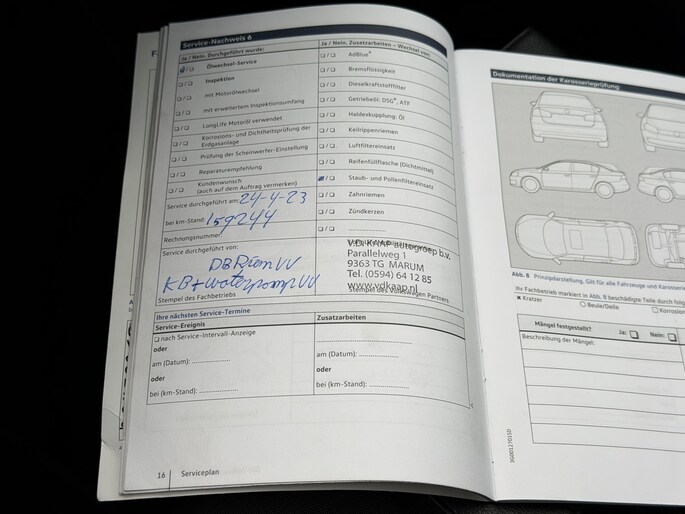 Service-Nachweis 6
Ja / Nein, Durchgeführt wurde:
Ölwechsel-Service
Inspektion
mit Motorölwechsel
mit erweitertem Inspektionsumfang
LongLife Motoröl verwendet
Korrosions- und Dichtheitsprüfung der
Erdgasanlage
Prüfung der Scheinwerfer-Einstellung
Reparaturempfehlung
Kundenwunsch
(auch auf dem Auftrag vermerken)
Service durchgeführt am: 24-4-23
bei km-Stand: 159244
Rechnungsnummer:
Service durchgeführt von:
DB Riem VV
KB + waterpomp VV
Stempel des Fachbetriebs
Ja / Nein, Zusatzarbeiten – Wechsel von:
AdBlue®
Bremsflüssigkeit
Dieselkraftstofffilter
Getriebeöl: DSG®, ATF
Haldexkupplung: Öl
Keilrippenriemen
Luftfiltereinsatz
Reifenfüllflasche (Dichtmittel)
Staub- und Pollenfiltereinsatz
Zahnriemen
Zündkerzen
V.D. KAAP autogroep b.v.
Parallelweg 1
9363 TG MARUM
Tel. (0594) 64 12 85
www.vdkaap.nl
Stempel des Volkswagen Partners
Ihre nächsten Service-Termine
Service-Ereignis
Zusatzarbeiten
nach Service-Intervall-Anzeige
oder
am (Datum): ..................
oder
bei (km-Stand): ..................
am (Datum): ..................
oder
bei (km-Stand): ..................
16
Serviceplan
Dokumentation der Karosserieprüfung
Abb. 8 Prinzipdarstellung. Gilt für alle Fahrzeuge und Karosserie
Ihr Fachbetrieb markiert in Abb. 8 beschädigte Teile durch folge
× Kratzer
○ Beule/Delle
□ Korrosion
Mängel festgestellt?
Ja:
Nein:
Beschreibung der Mängel: